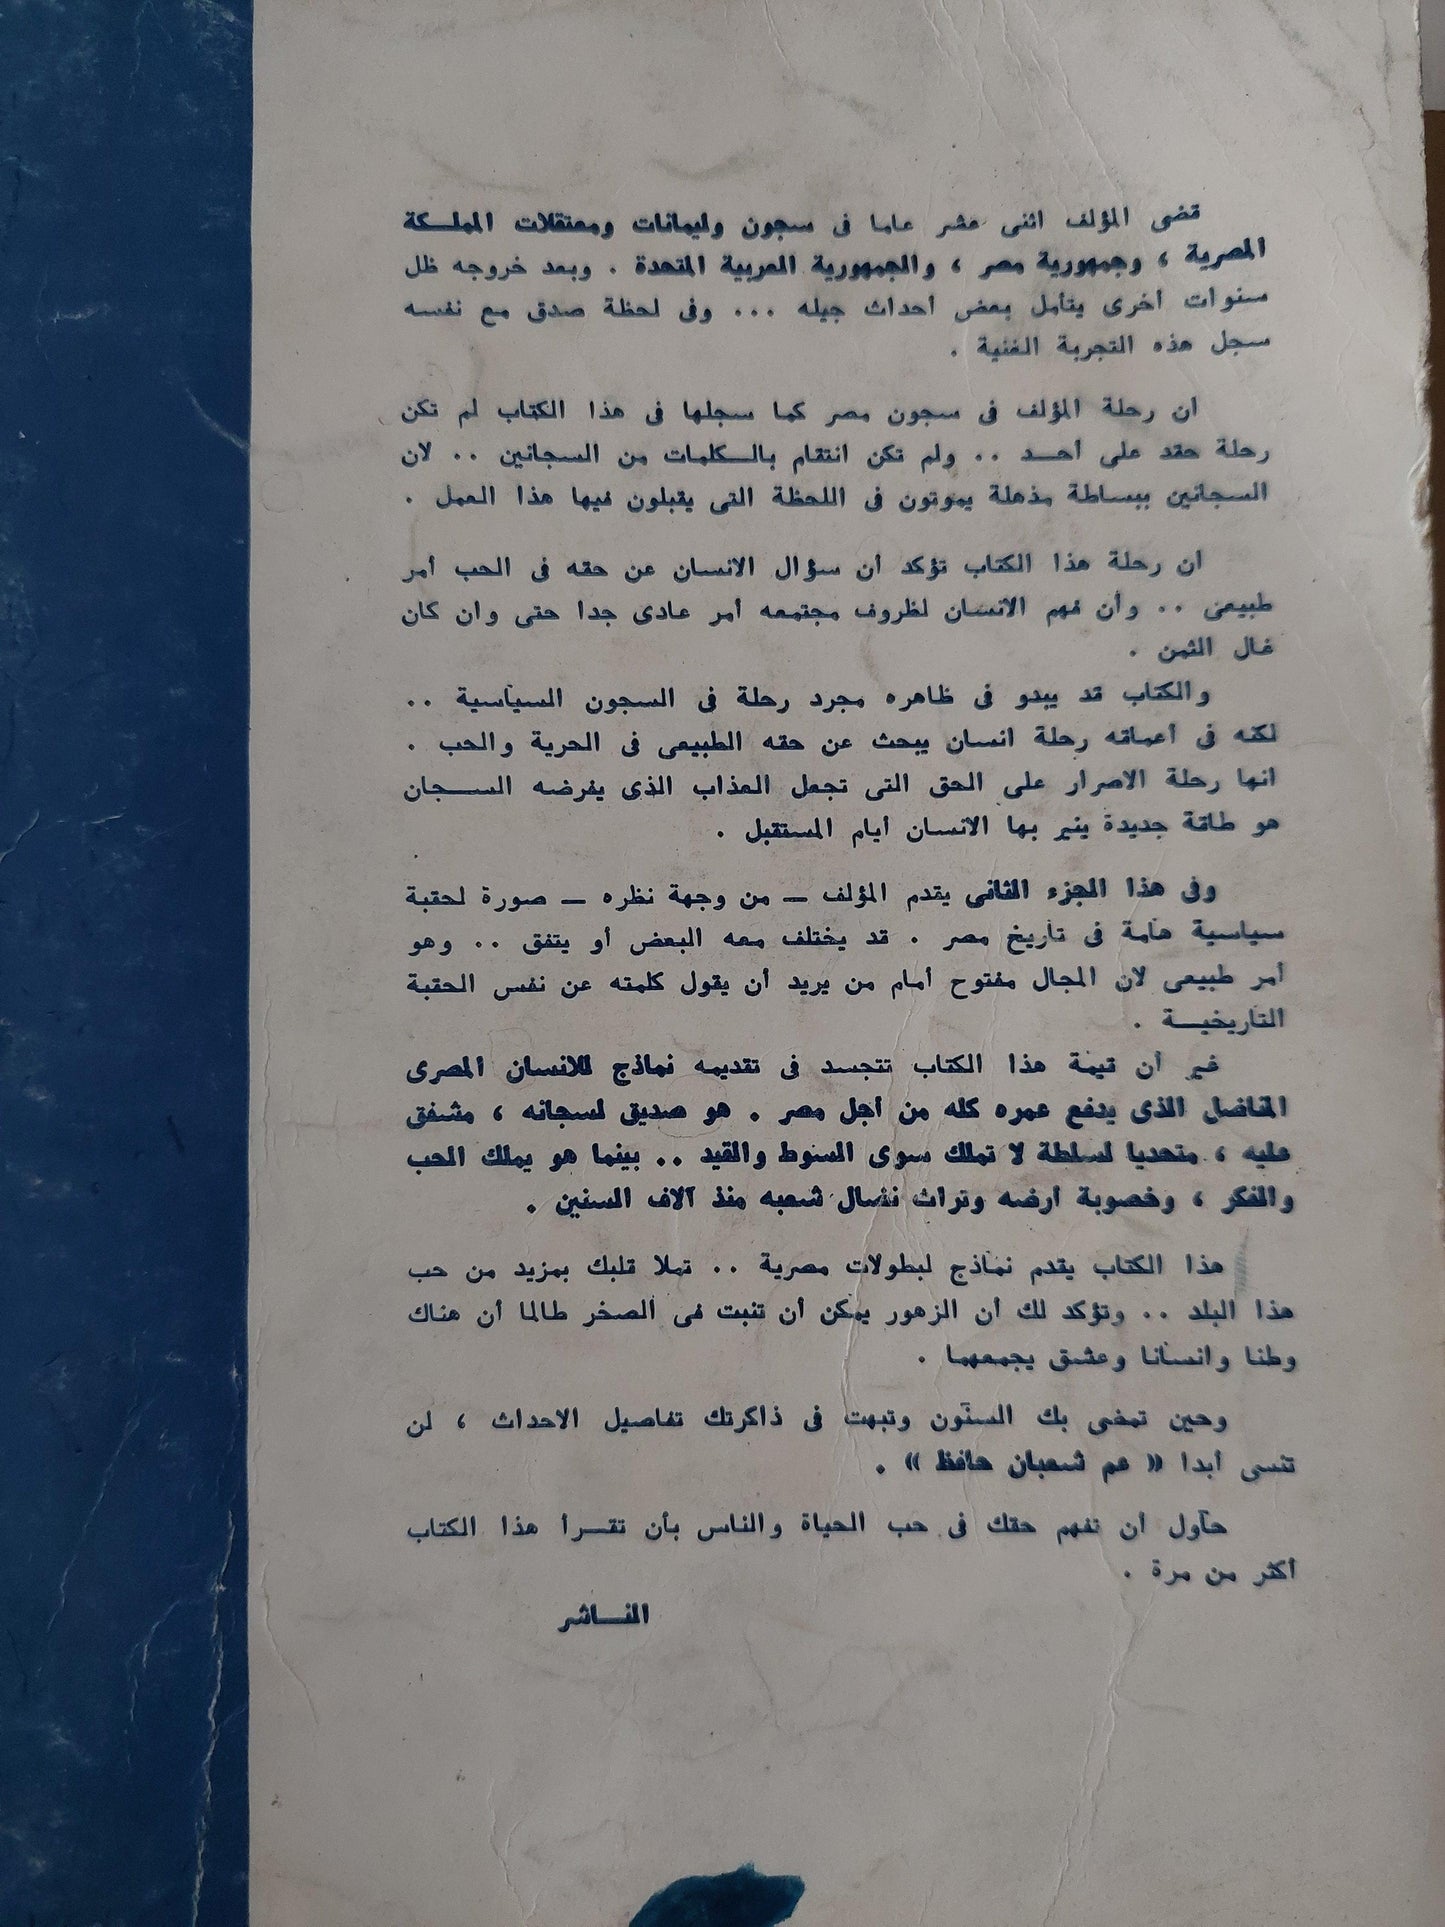 قضى المؤلف اثنى عشر عاما فى سجون وليمانات ومعتقلات المملـكة
المصرية ، وجمهورية مصر ، والجمهورية العربية المتحدة . وبعد خروجه ظل
سنوات أخرى يتأمل بعض أحداث جيله ... وفى لحظة صدق مع نفسه
سجل هذه التجربة الغنية .
ان رحلة المؤلف فى سجون مصر كما سجلها فى هذا الكتاب لم تكن
رحلة حقد على أحـــد .. ولم تكن انتقام بالـــكلمات من السجانين .. لان
السجانين ببساطة مذهلة يموتون فى اللحظة التى يقبلون فيها هذا العمل .
ان رحلة هذا الكتاب تؤكد أن سؤال الانسان عن حقه فى الحب أمر
طبيعى .. وأن فهم الانسان لظروف مجتمعه أمر عادى جدا حتى وان كان
غال الثمن .
والكتاب قد يبدو فى ظاهره مجرد رحلة فى السجون السياسية ..
لكنه فى أعماقه رحلة انسان يبحث عن حقه الطبيعى فى الحرية والحب .
انها رحلة الاصرار على الحق التى تجعل العذاب الذى يفرضه الســـجان
هو طاقة جديدة ينير بها الانسان أيام المستقبل .
وفى هذا الجزء الثانى يقدم المؤلف — من وجهة نظره — صورة لحقبة
سياسية هامة فى تاريخ مصر . قد يختلف معه البعض أو يتفق .. وهو
أمر طبيعى لان المجال مفتوح أمام من يريد أن يقول كلمته عن نفس الحقبة
التاريخيـــة .
غير أن قيمة هذا الكتاب تتجسد فى تقديمه نماذج للانسان المصرى
المناضل الذى يدفع عمره كله من أجل مصر . هو صديق لسجانه ، مشفق
عليه ، متحديا لسلطة لا تملك سوى السوط والقيد .. بينما هو يملك الحب
والفكر ، وخصوبة أرضه وتراث نضال شعبه منذ آلاف السنين .
هذا الكتاب يقدم نماذج لبطولات مصرية .. تملا قلبك بمزيد من حب
هذا البلد .. وتؤكد لك أن الزهور يمكن أن تنبت فى الصخر طالما أن هناك
وطنا وانسانا وعشق يجمعهما .
وحين تمضى بك السنون وتبهت فى ذاكرتك تفاصيل الاحداث ، لن
تنسى أبدا « عم شعبان حافظ » .
حاول أن تفهم حقك فى حب الحياة والناس بأن تقـــرأ هذا الكتاب
أكثر من مرة .
النـــاشر